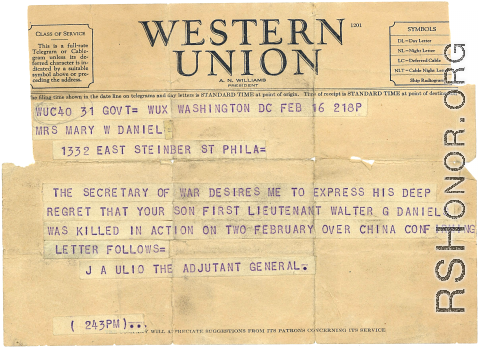 CLASS OF SERVICE
This is a full-rate
Telegram or Cable-
gram unless its de-
ferred character is in-
dicated by a suitable
symbol above or pre-
ceding the address.
WESTERN
UNION
1201
A. N. WILLIAMS
PRESIDENT
SYMBOLS
DL=Day Letter
NL=Night Letter
LC=Deferred Cable
NLT=Cable Night Letter
Ship Radiogram
The filing time shown in the date line on telegrams and day letters is STANDARD TIME at point of origin. Time of receipt is STANDARD TIME at point of destination
WUC40 31 GOVT= WUX WASHINGTON DC FEB 16 218P
MRS MARY W DANIEL=
1332 EAST STEINBER ST PHILA=
THE SECRETARY OF WAR DESIRES ME TO EXPRESS HIS DEEP
REGRET THAT YOUR SON FIRST LIEUTENANT WALTER G DANIEL
WAS KILLED IN ACTION ON TWO FEBRUARY OVER CHINA CONFIRMING
LETTER FOLLOWS=
J A ULIO THE ADJUTANT GENERAL.
(243PM)...
WILL APPRECIATE SUGGESTIONS FROM ITS PATRONS CONCERNING ITS SERVICE
RSHONOR.ORG